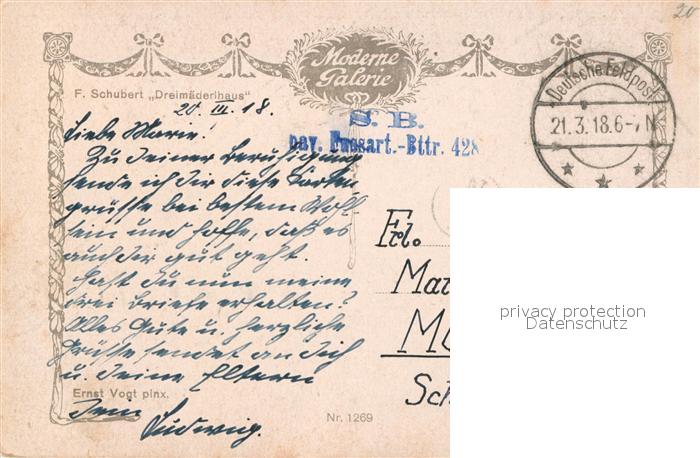 20
Moderne
Galerie
F. Schubert „Dreimäderlhaus"
Deutsche Feldpost
21.3.18.6-7N
20. III. 18.
S. B.
bay. Fussart.-Bttr. 428
Liebe Marie!
Zu deiner Beruhigung
sende ich dir diese Karten
grüsse bei bestem Wohl
sein und hoffe, daß es
auch dir gut geht.
Hast du nun meine
drei Briefe erhalten?
Alles Gute u. herzliche
Grüsse sendet an dich
u. deine Eltern
Dein
Ludwig.
Frl.
Mar
Sch
Ernst Vogt pinx.
Nr. 1269
privacy protection
Datenschutz